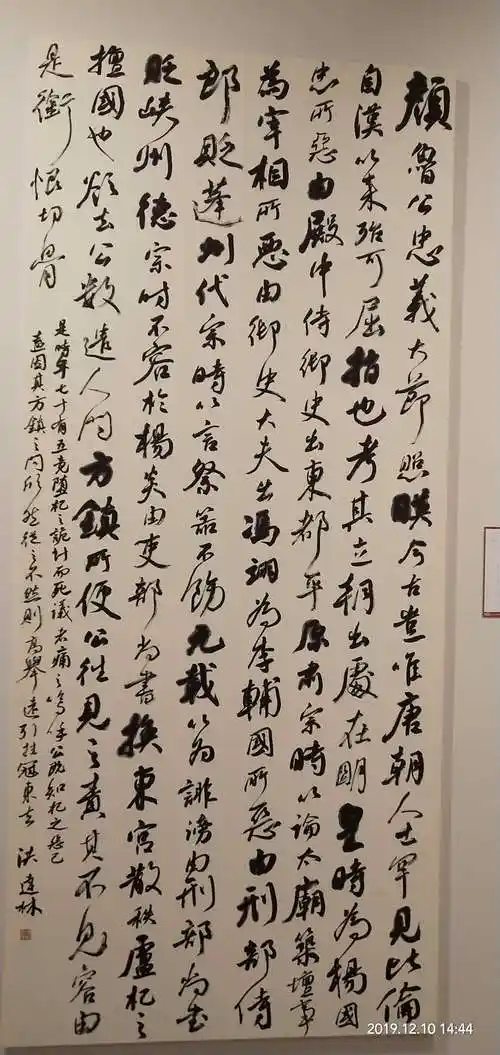 顔魯公忠義大節照暎今古豈唯唐朝人士罕見比倫
自漢以来殆可屈指也考其立朝出處在明皇時為楊國
忠所惡由殿中侍御史出東都平原肅宗時以論太廟築壇事
為宰相所惡由御史大夫出馮翊為李輔國所惡由刑部侍
郎貶蓬州代宗時以言祭器不飭元載以為誹謗由刑部尚書
貶峽州德宗时不容於楊炎由吏部尚書換東宮散秩盧杞之
擅國也欲去公數遣人問方鎮所便公往見之責其不見容由
是銜恨切骨
是時年七十有五竟墮杞之詭計而死議者痛之嗚呼公既知杞之惡己
盍因其方鎮之問欣然從之不然則高舉遠引挂冠東去 洪達林
2019.12.10 14:44